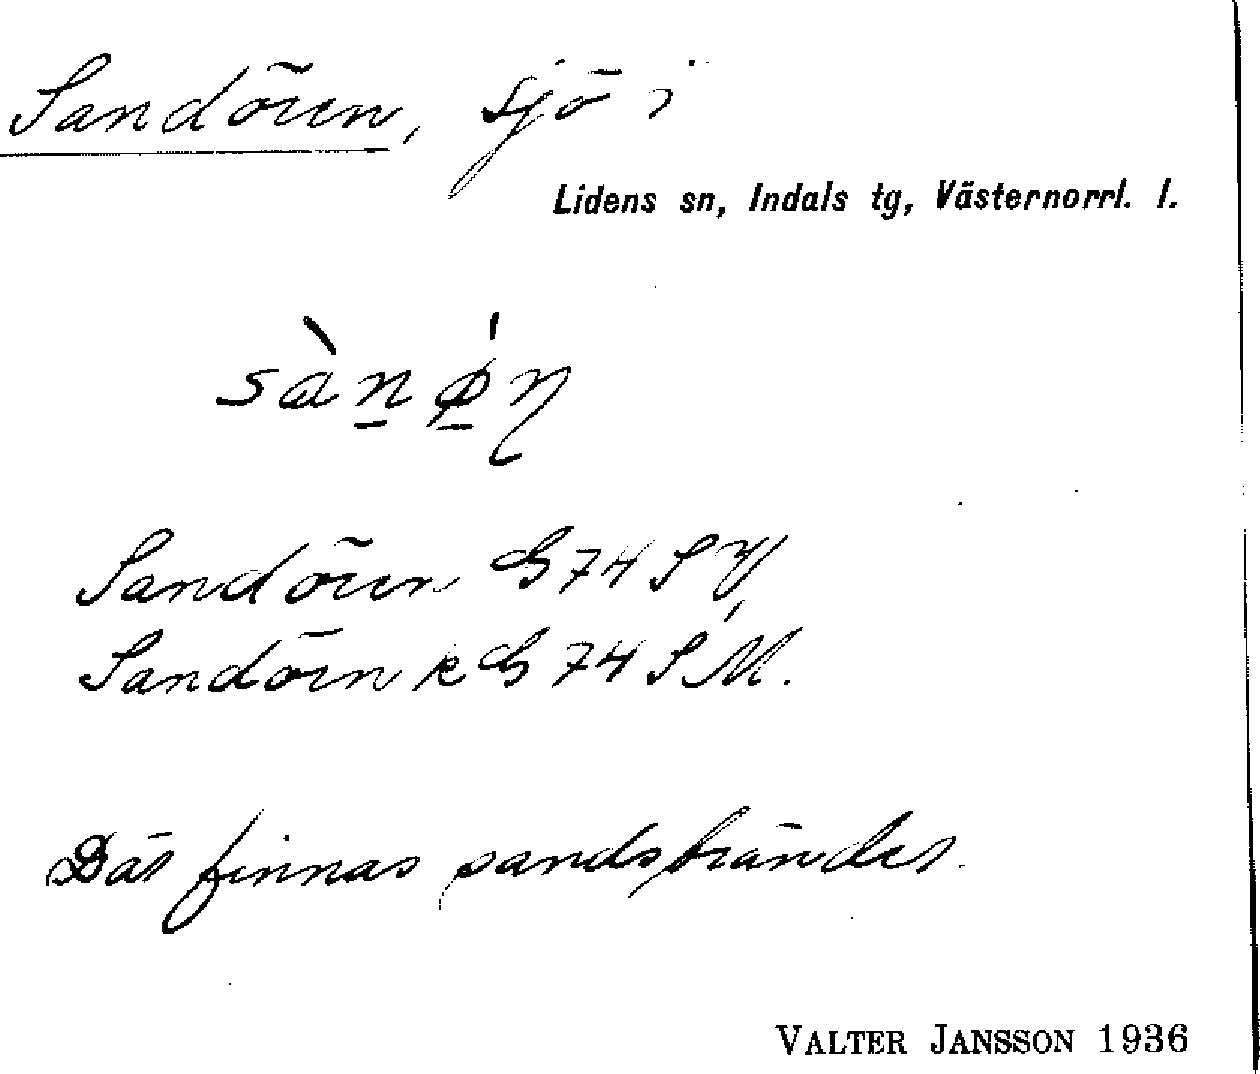 Sandören, sjö i
Lidens sn, Indals tg, Västernorrl. l.
sàn ø̀n
Sandören G 74 S V,
Sandörn k G 74 S M.
Där finnas sandstränder.
VALTER JANSSON 1936